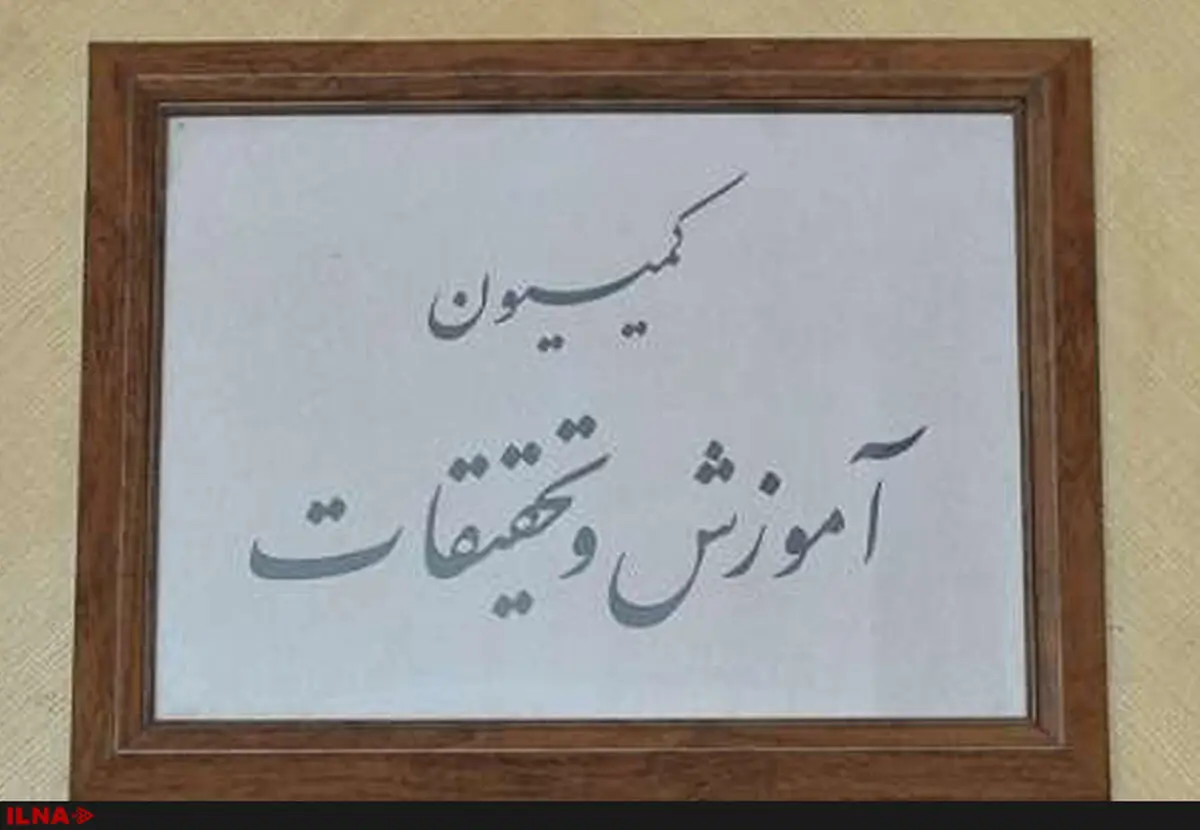 کمیسیون
آموزش و تحقیقات
ILNA